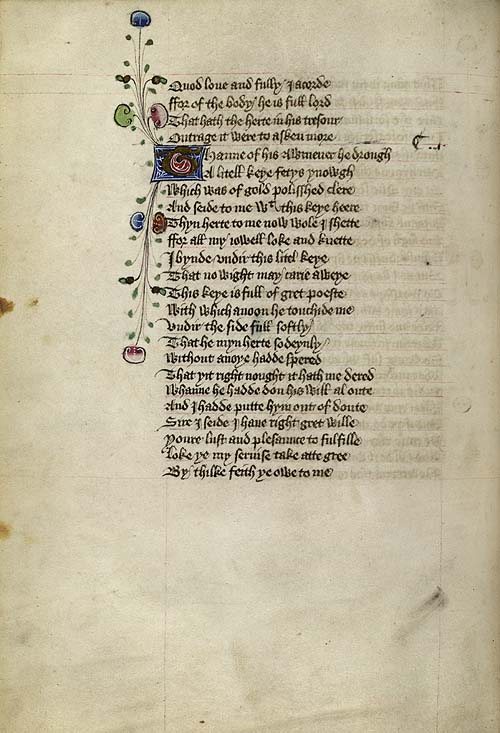 Quod loue and fully I acorde
ffor of the body he is full lord
That hath the herte in his tresour
Outrage it were to asken more
Thanne of his Awmener he drough
A litell keye fetys ynowgh
Which was of gold polisshed clere
And seide to me wt this keye heere
Thyn herte to me now wole I shette
ffor all my iowell loke and knette
I bynde vndir this litel keye
That no wight may carie aweye
This keye is full of gret poeste
With which anoon he touchide me
Vndir the side full softly
That he myn herte sodeynly
Without anoye hadde spered
That yit right nought it hath me dered
Whanne he hadde don his will al oute
And I hadde putte hym out of doute
Sire I seide I haue right gret wille
Youre lust and plesaunce to fulfille
Loke ye my seruise take atte gree
By thilke feith ye owe to me